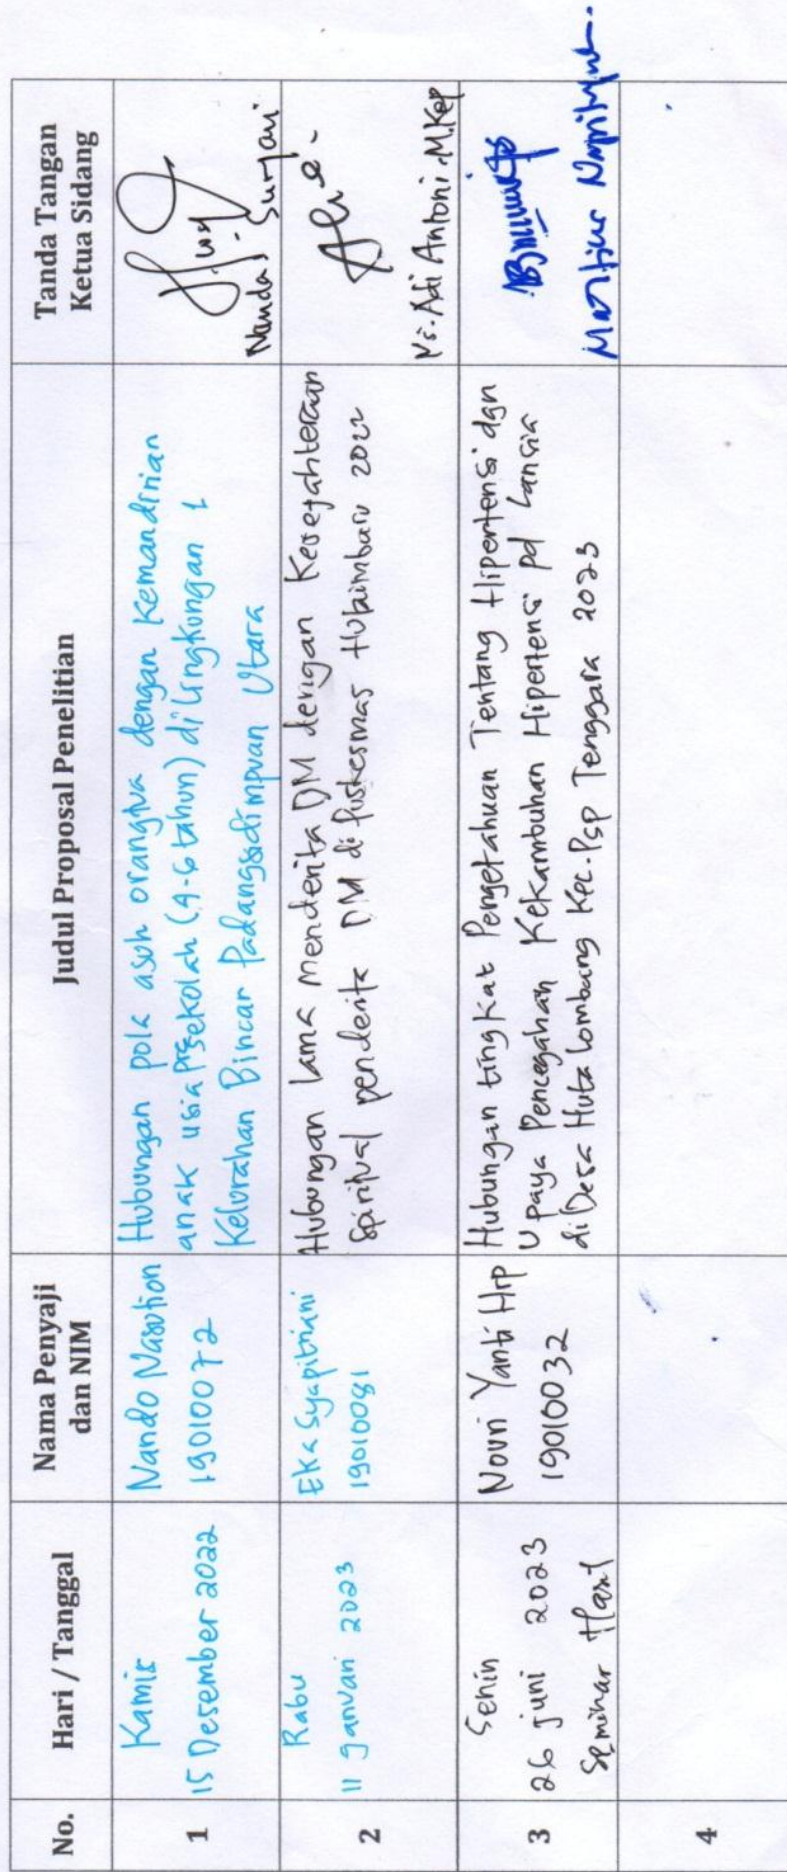 No.
Hari / Tanggal
Nama Penyaji
dan NIM
Judul Proposal Penelitian
Tanda Tangan
Ketua Sidang
1
Kamis
15 Desember 2022
Nando Nasution
19010072
Hubungan pola asuh orangtua dengan Kemandirian
anak usia Prasekolah (4-6 tahun) di Lingkungan 1
Kelurahan Bincar Padangsidimpuan Utara
Nanda Suryani
2
Rabu
11 Januari 2023
Eka Syapitriani
19010081
Hubungan Lama menderita DM dengan Kesejahteraan
Spiritual penderita DM di Puskesmas Hutaimbaru 2022
Ns. Adi Antoni M.Kep
3
Senin
26 Juni 2023
Seminar Hasil
Novri Yanti Hrp
19010032
Hubungan tingkat Pengetahuan Tentang Hipertensi dgn
Upaya Pencegahan Kekambuhan Hipertensi pd Lansia
di Desa Huta Lombang Kec. Psp Tenggara 2023
4